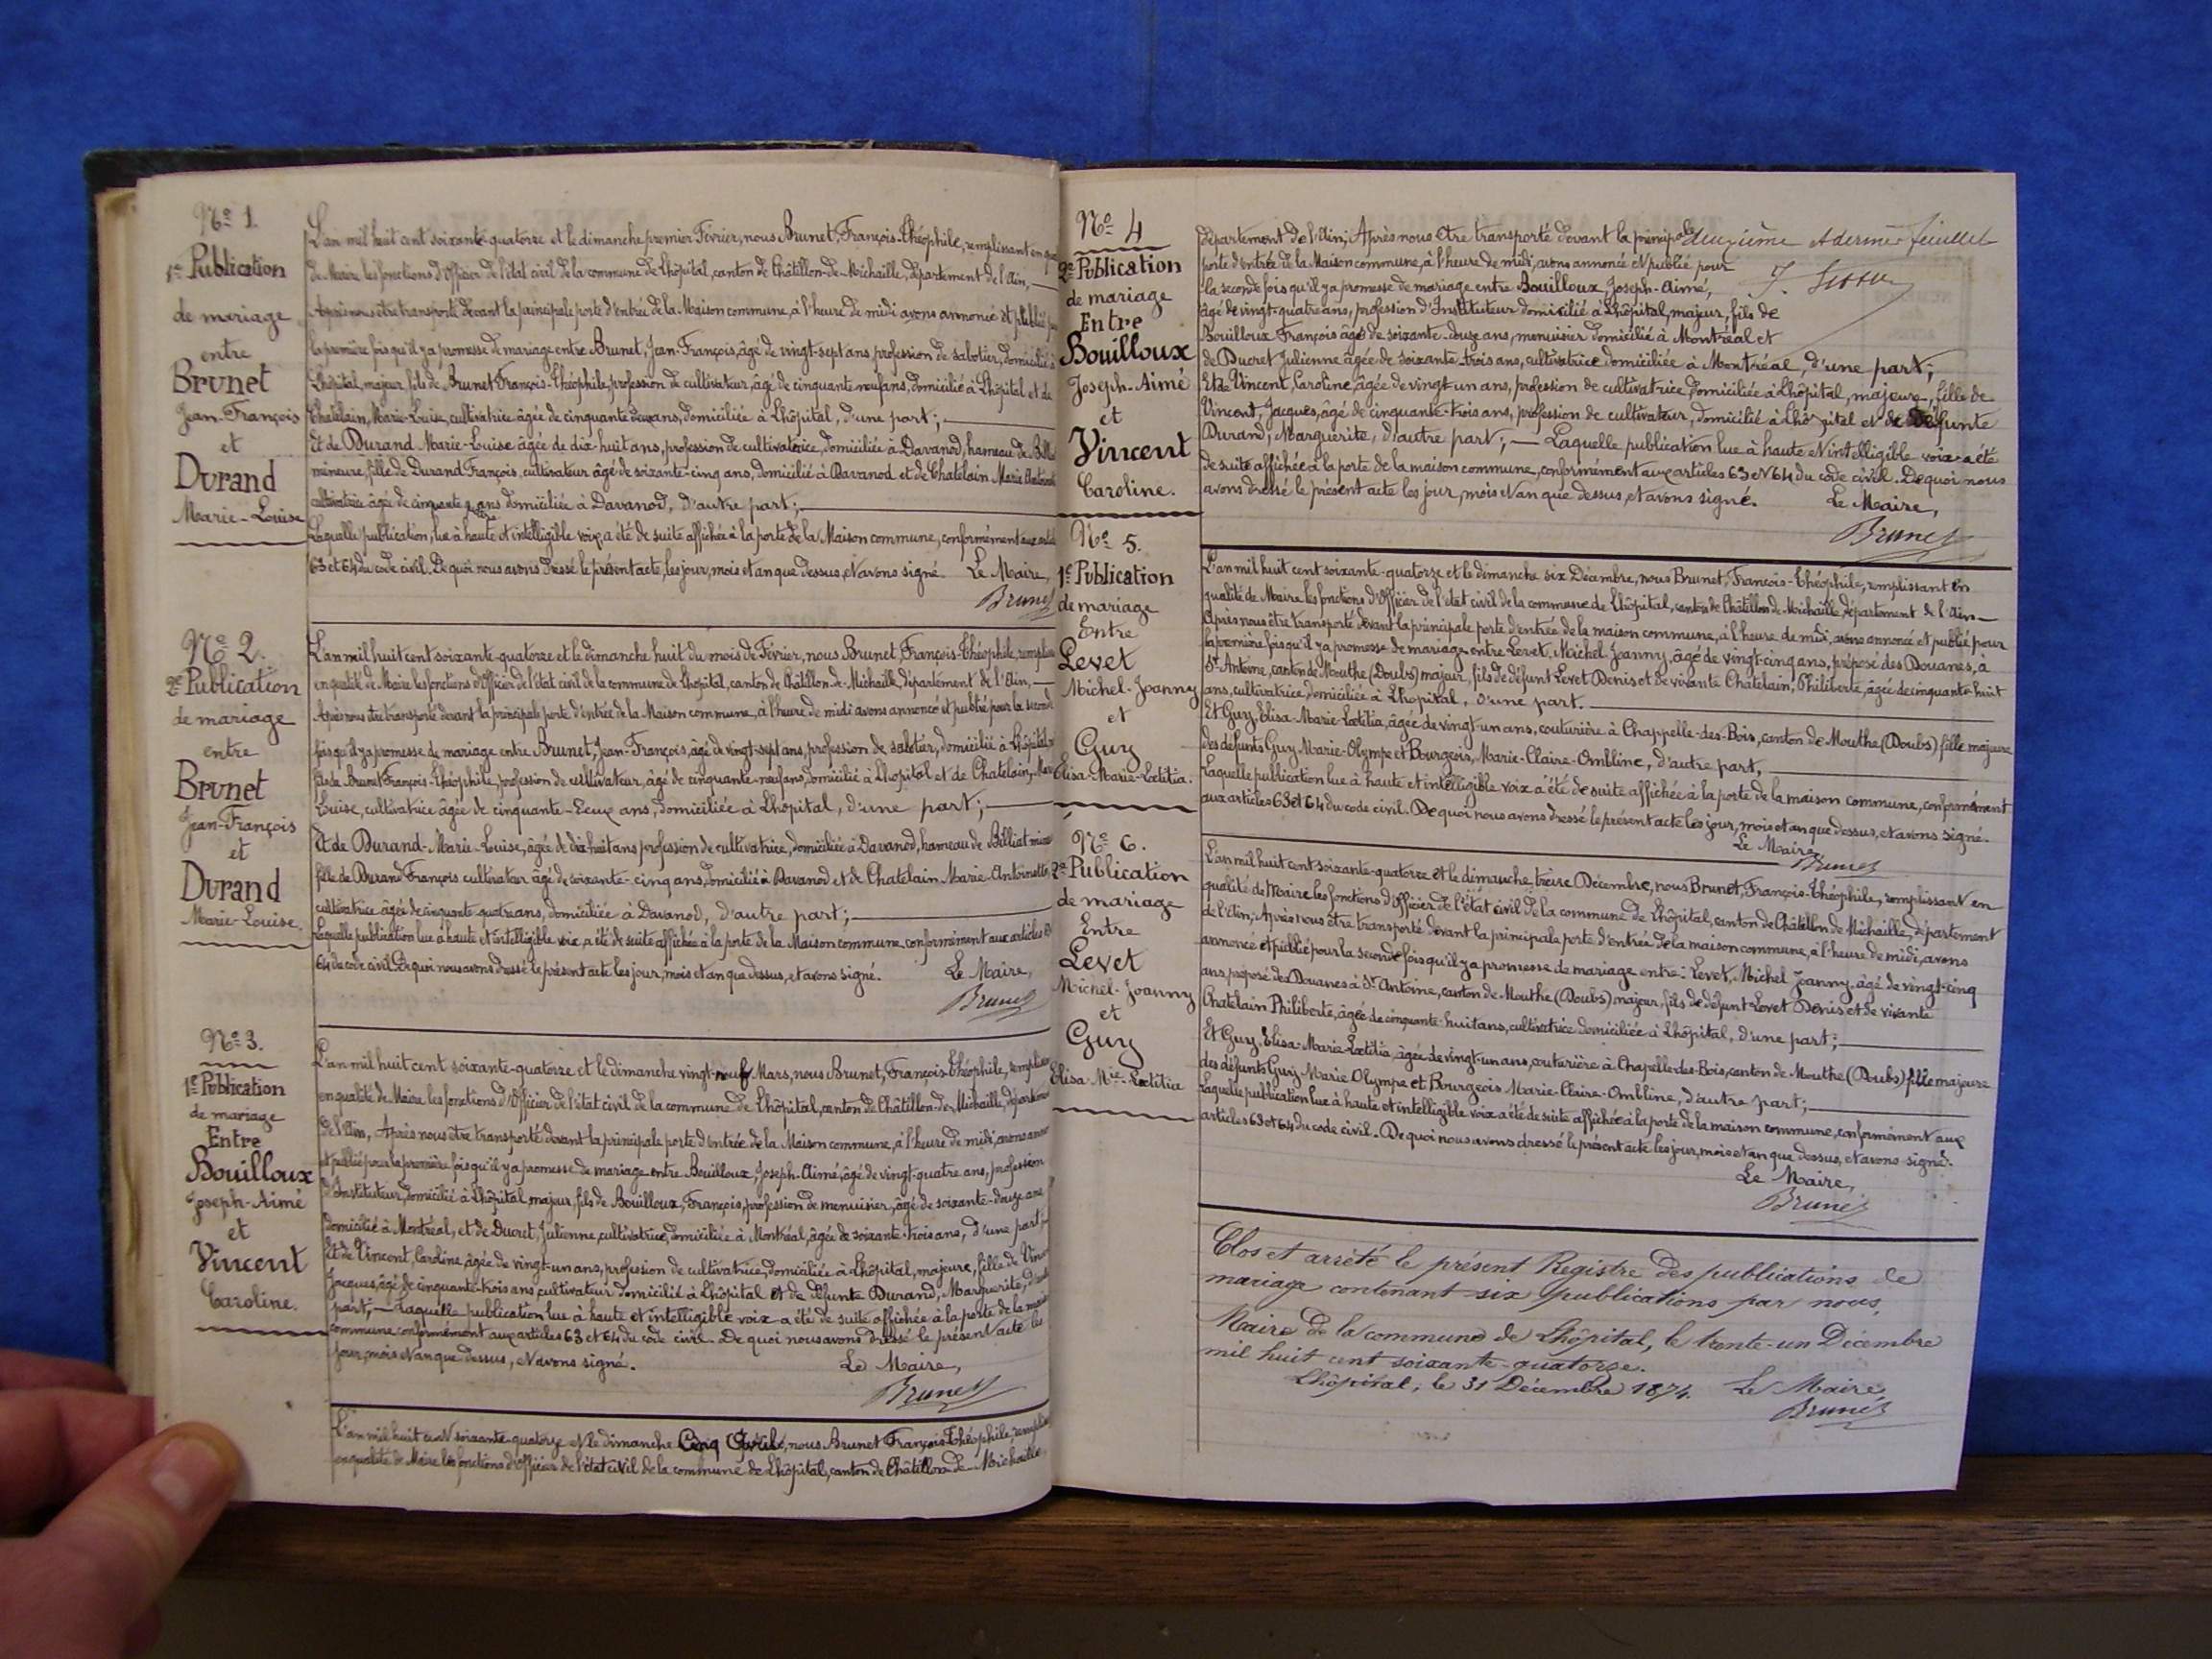 Nº 1.
1re Publication
de mariage
entre
Brunet
Jean-François
et
Durand
Marie-Louise
L'an mil huit cent soixante-quatorze et le dimanche premier Février, nous Brunet, François-Théophile, remplissant en
de Maire les fonctions d'Officier de l'état civil de la commune de Lhôpital, canton de Châtillon-de-Michaille, département de l'Ain,
Après nous être transporté devant la principale porte d'entrée de la Maison commune, à l'heure de midi avons annoncé et publié
la première fois qu'il y a promesse de mariage entre Brunet, Jean-François, âgé de vingt-sept ans, profession de sabotier, domicilié à
Lhôpital, majeur, fils de Brunet François-Théophile, profession de cultivateur, âgé de cinquante neuf ans, domicilié à Lhôpital et de
Chatelain, Marie-Louise, cultivatrice âgée de cinquante deux ans, domiciliée à Lhôpital, d'une part;
Et de Durand Marie-Louise âgée de dix-huit ans, profession de cultivatrice, domiciliée à Davanod, hameau de
mineure, fille de Durand François, cultivateur âgé de soixante-cinq ans, domicilié à Davanod et de Chatelain Marie
cultivatrice âgée de cinquante quatre ans domiciliée à Davanod, d'autre part;
Laquelle publication, lue à haute et intelligible voix, a été de suite affichée à la porte de la Maison commune, conformément aux
63 et 64 du code civil. De quoi nous avons dressé le présent acte, les jour, mois et an que dessus, et avons signé. Le Maire,
Brunet
Nº 2.
2e Publication
de mariage
entre
Brunet
Jean-François
et
Durand
Marie-Louise.
L'an mil huit cent soixante-quatorze et le dimanche huit du mois de Février, nous Brunet, François-Théophile,
en qualité de Maire les fonctions d'Officier de l'état civil de la commune de Lhôpital, canton de Châtillon-de-Michaille, département de l'Ain,
Après nous être transporté devant la principale porte d'entrée de la Maison commune, à l'heure de midi avons annoncé et publié pour la second
fois qu'il y a promesse de mariage entre Brunet, Jean-François, âgé de vingt-sept ans, profession de sabotier, domicilié à Lhôpital,
fils de Brunet François-Théophile, profession de cultivateur, âgé de cinquante-neuf ans, domicilié à Lhopital et de Chatelain,
Louise, cultivatrice âgée de cinquante-deux ans, domiciliée à Lhôpital, d'une part;
Et de Durand-Marie-Louise, âgée de dix-huit ans profession de cultivatrice, domiciliée à Davanod, hameau de Billiat
fille de Durand François cultivateur âgé de soixante-cinq ans, domicilié à Davanod et de Chatelain Marie-Antoinette,
cultivatrice âgée de cinquante-quatre ans, domiciliée à Davanod, d'autre part;
Laquelle publication lue à haute et intelligible voix, a été de suite affichée à la porte de la Maison commune, conformément aux articles
64 du code civil. De quoi nous avons dressé le présent acte les jour, mois et an que dessus, et avons signé. Le Maire,
Brunet
Nº 3.
1e Publication
de mariage
Entre
Bouilloux
Joseph-Aimé
et
Vincent
Caroline.
L'an mil huit cent soixante-quatorze et le dimanche vingt-neuf Mars, nous Brunet, François-Théophile,
en qualité de Maire les fonctions d'Officier de l'état civil de la commune de Lhôpital, canton de Châtillon-de-Michaille,
de l'Ain, Après nous être transporté devant la principale porte d'entrée de la Maison commune, à l'heure de midi, avons
et publié pour la première fois qu'il y a promesse de mariage entre Bouilloux, Joseph-Aimé, âgé de vingt-quatre ans, profession
d'Instituteur, domicilié à Lhôpital majeur, fils de Bouilloux, François, profession de menuisier, âgé de soixante-douze ans
domicilié à Montréal, et de Ducret, Julienne, cultivatrice, domiciliée à Montréal, âgée de soixante-trois ans, d'une part;
Et de Vincent, Caroline, âgée de vingt-un ans, profession de cultivatrice, domiciliée à Lhôpital, majeure, fille de
Jacques, âgé de cinquante-trois ans cultivateur domicilié à Lhôpital et de défunte Durand, Marguerite,
part; — Laquelle publication lue à haute et intelligible voix a été de suite affichée à la porte de la
commune conformément aux articles 63 et 64 du code civil. De quoi nous avons dressé le présent acte les
jour, mois et an que dessus, et avons signé. Le Maire,
Brunet
L'an mil huit cent soixante-quatorze et le dimanche Cinq Avril, nous Brunet François-Théophile,
en qualité de Maire les fonctions d'Officier de l'état civil de la commune de Lhôpital, canton de Châtillon-de-Michaille
Nº 4
2e Publication
de mariage
Entre
Bouilloux
Joseph-Aimé
et
Vincent
Caroline.
deuxième et dernier feuillet
département de l'Ain; Après nous être transporté devant la principale
porte d'entrée de la Maison commune, à l'heure de midi, avons annoncé et publié pour
la seconde fois qu'il y a promesse de mariage entre Bouilloux, Joseph-Aimé,
âgé de vingt-quatre ans, profession d'Instituteur domicilié à Lhôpital, majeur, fils de
Bouilloux François âgé de soixante-douze ans, menuisier domicilié à Montréal et
de Ducret Julienne âgée de soixante-trois ans, cultivatrice domiciliée à Montréal, d'une part;
Et de Vincent, Caroline, âgée de vingt-un ans, profession de cultivatrice domiciliée à Lhôpital, majeure, fille de
Vincent, Jacques, âgé de cinquante-trois ans, profession de cultivateur, domicilié à Lhôpital et de défunte
Durand, Marguerite, d'autre part; — Laquelle publication lue à haute et intelligible voix a été
de suite affichée à la porte de la maison commune, conformément aux articles 63 et 64 du code civil. De quoi nous
avons dressé le présent acte les jour, mois et an que dessus, et avons signé. Le Maire,
Brunet
Nº 5.
1e Publication
de mariage
Entre
Levet
Michel-Joanny
et
Guy
Elisa-Marie-Lœtitia.
L'an mil huit cent soixante-quatorze et le dimanche six Décembre, nous Brunet, François-Théophile, remplissant en
qualité de Maire les fonctions d'Officier de l'état civil de la commune de Lhôpital, canton de Châtillon-de-Michaille, département de l'Ain —
Après nous être transporté devant la principale porte d'entrée de la maison commune, à l'heure de midi, avons annoncé et publié pour
la première fois qu'il y a promesse de mariage entre Levet, Michel-Joanny, âgé de vingt-cinq ans, préposé des Douanes, à
St Antoine, canton de Mouthe (Doubs) majeur, fils de défunt Levet Denis et de vivante Chatelain, Philiberte, âgée de cinquante-huit
ans, cultivatrice, domiciliée à Lhopital, d'une part.
Et Guy, Elisa-Marie-Lœtitia, âgée de vingt-un ans, couturière à Chappelle-des-Bois, canton de Mouthe (Doubs) fille majeure
des défunts Guy Marie-Olympe et Bourgeois, Marie-Claire-Ombline, d'autre part,
Laquelle publication lue à haute et intelligible voix a été de suite affichée à la porte de la maison commune, conformément
aux articles 63 et 64 du code civil. De quoi nous avons dressé le présent acte les jour, mois et an que dessus, et avons signé.
Le Maire,
Brunet
Nº 6.
2e Publication
de mariage
Entre
Levet
Michel-Joanny
et
Guy
Elisa Mie-Lœtitia
L'an mil huit cent soixante-quatorze et le dimanche, treize Décembre, nous Brunet, François-Théophile, remplissant en
qualité de Maire les fonctions d'Officier de l'état civil de la commune de Lhôpital, canton de Châtillon de Michaille, département
de l'Ain; Après nous être transporté devant la principale porte d'entrée de la maison commune, à l'heure de midi, avons
annoncé et publié pour la seconde fois qu'il y a promesse de mariage entre: Levet, Michel Joanny, âgé de vingt-cinq
ans préposé des Douanes à St Antoine, canton de Mouthe (Doubs) majeur, fils de défunt Levet Denis et de vivante
Chatelain Philiberte, âgée de cinquante-huit ans, cultivatrice domiciliée à Lhôpital, d'une part;
Et Guy, Elisa-Marie-Lœtitia, âgée de vingt-un ans, couturière à Chapelle-des-Bois, canton de Mouthe (Doubs) fille majeure
des défunts Guy Marie Olympe et Bourgeois Marie-Claire-Ombline, d'autre part;
Laquelle publication lue à haute et intelligible voix a été de suite affichée à la porte de la maison commune, conformément aux
articles 63 et 64 du code civil. De quoi nous avons dressé le présent acte les jour, mois et an que dessus, et avons signé.
Le Maire,
Brunet
Clos et arrêté le présent Registre des publications de
mariage contenant six publications par nous,
Maire de la commune de Lhôpital, le trente-un Décembre
mil huit cent soixante-quatorze.
Lhôpital, le 31 Décembre 1874. Le Maire
Brunet